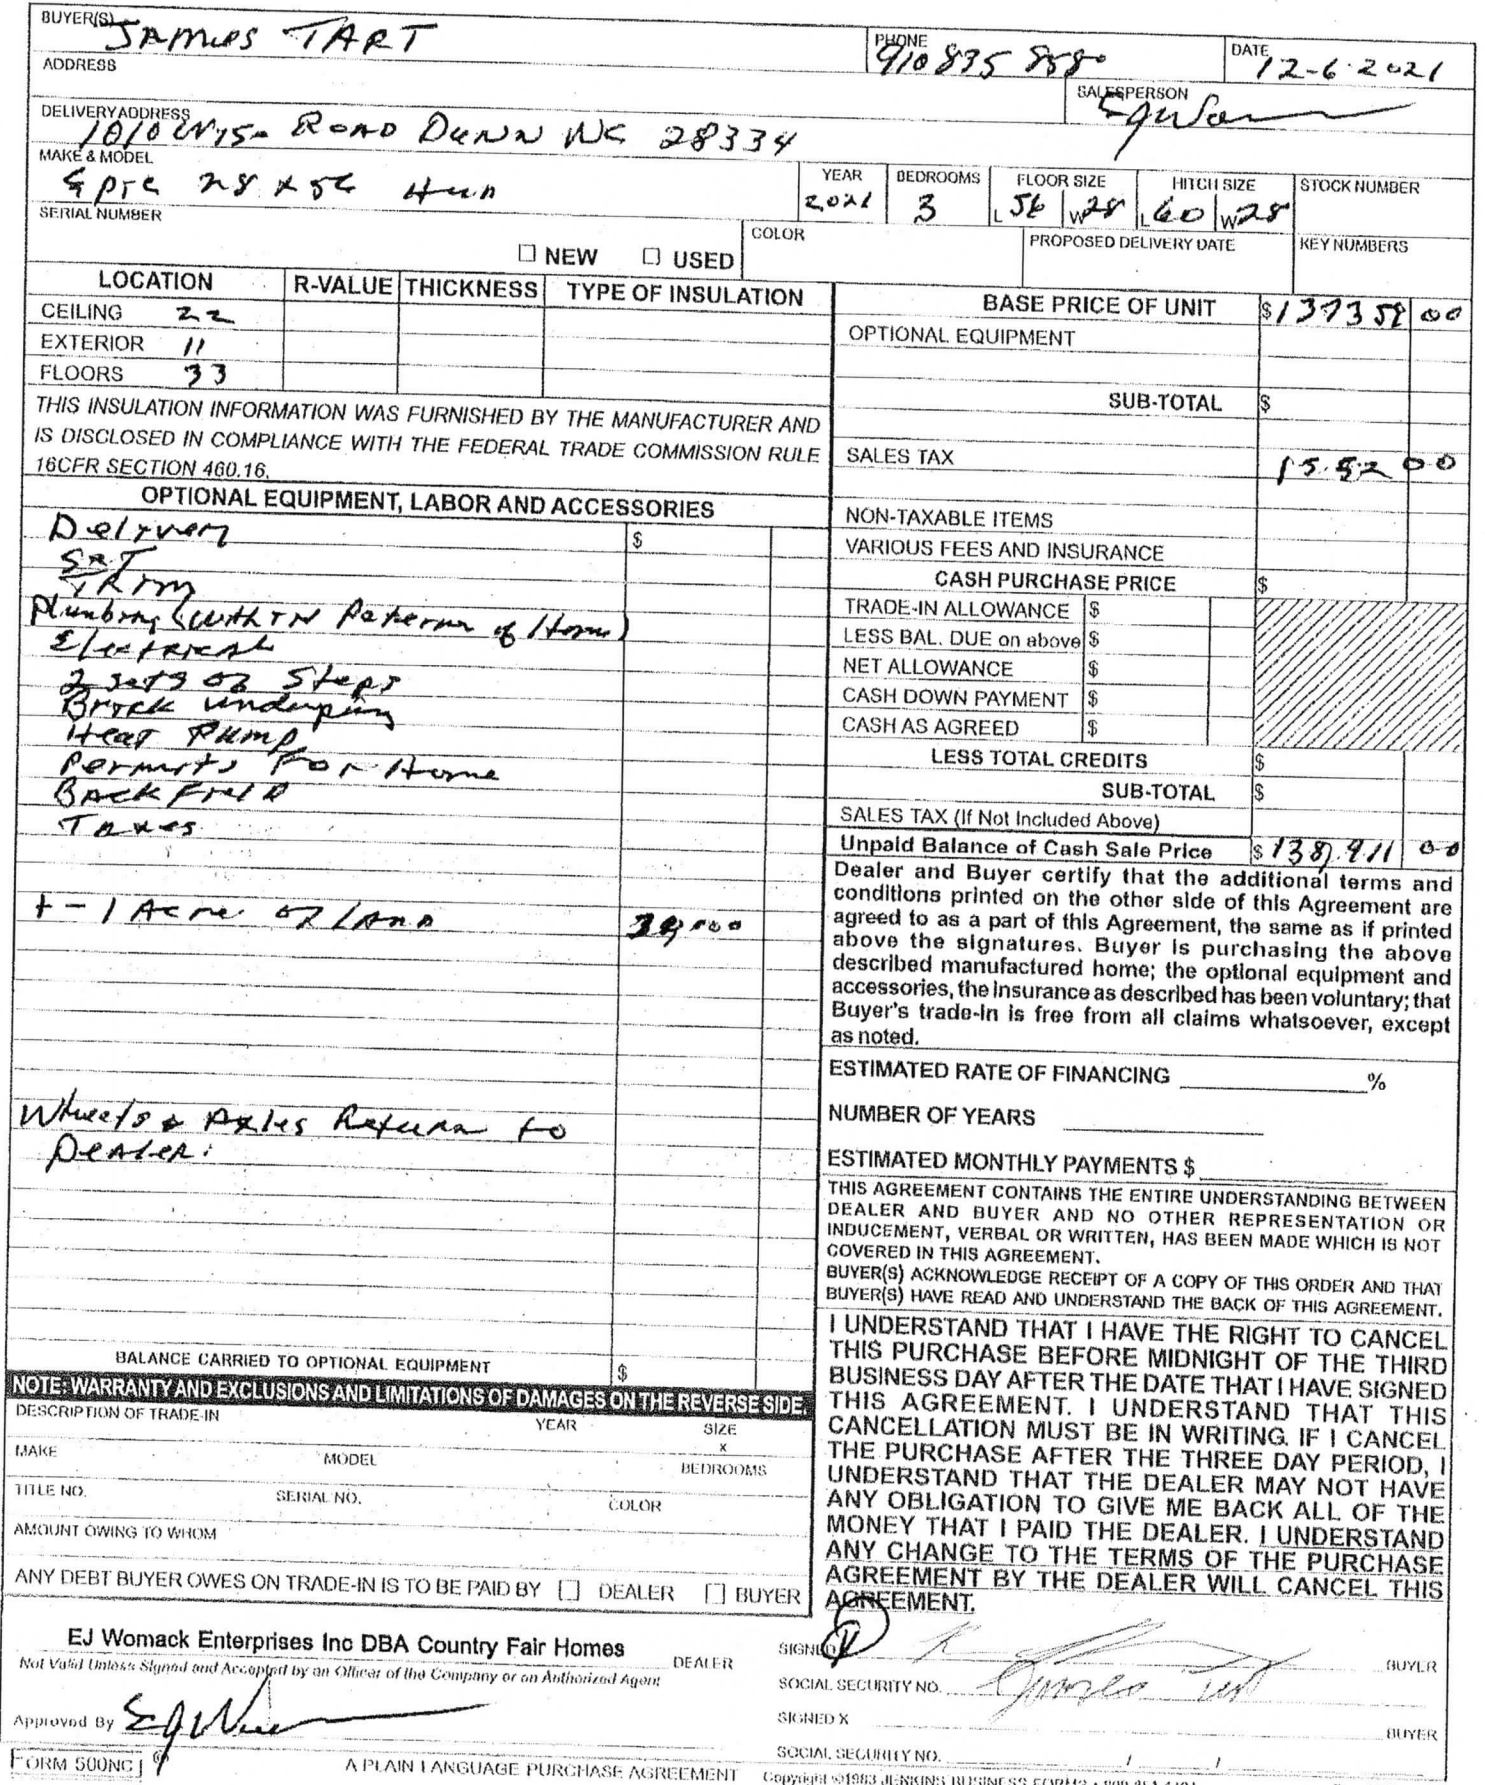 BUYER(S) James TART
PHONE 910 835 8580
DATE 12-6-2021
ADDRESS
SALESPERSON EJ Wom
DELIVERY ADDRESS 1010 Road Dunn NC 28334
MAKE & MODEL 28 x 56
YEAR 2021
BEDROOMS 3
FLOOR SIZE L 56 W 28
HITCH SIZE L 60 W 28
STOCK NUMBER
SERIAL NUMBER
☐ NEW ☐ USED
COLOR
PROPOSED DELIVERY DATE
KEY NUMBERS
LOCATION R-VALUE THICKNESS TYPE OF INSULATION
CEILING 22
EXTERIOR 11
FLOORS 33
THIS INSULATION INFORMATION WAS FURNISHED BY THE MANUFACTURER AND
IS DISCLOSED IN COMPLIANCE WITH THE FEDERAL TRADE COMMISSION RULE
16CFR SECTION 460.16.
OPTIONAL EQUIPMENT, LABOR AND ACCESSORIES
Delivery $
Set
Trim
Plumbing (within Patern of Home)
Electrical
2 sets of Steps
Brick underping
Heat Pump
Permits For Home
BackField
Taxes
+ - 1 Acre of LAND
Wheels & Axles Return to
Dealer.
BALANCE CARRIED TO OPTIONAL EQUIPMENT $
NOTE: WARRANTY AND EXCLUSIONS AND LIMITATIONS OF DAMAGES ON THE REVERSE SIDE.
DESCRIPTION OF TRADE-IN YEAR SIZE
x
MAKE MODEL BEDROOMS
TITLE NO. SERIAL NO. COLOR
AMOUNT OWING TO WHOM
ANY DEBT BUYER OWES ON TRADE-IN IS TO BE PAID BY ☐ DEALER ☐ BUYER
BASE PRICE OF UNIT $137359 00
OPTIONAL EQUIPMENT
SUB-TOTAL $
SALES TAX 15.52 00
NON-TAXABLE ITEMS
VARIOUS FEES AND INSURANCE
CASH PURCHASE PRICE $
TRADE-IN ALLOWANCE $
LESS BAL. DUE on above $
NET ALLOWANCE $
CASH DOWN PAYMENT $
CASH AS AGREED $
LESS TOTAL CREDITS $
SUB-TOTAL $
SALES TAX (If Not Included Above)
Unpaid Balance of Cash Sale Price $138,911 00
Dealer and Buyer certify that the additional terms and
conditions printed on the other side of this Agreement are
agreed to as a part of this Agreement, the same as if printed
above the signatures. Buyer is purchasing the above
described manufactured home; the optional equipment and
accessories, the insurance as described has been voluntary; that
Buyer's trade-in is free from all claims whatsoever, except
as noted.
ESTIMATED RATE OF FINANCING %
NUMBER OF YEARS
ESTIMATED MONTHLY PAYMENTS $
THIS AGREEMENT CONTAINS THE ENTIRE UNDERSTANDING BETWEEN
DEALER AND BUYER AND NO OTHER REPRESENTATION OR
INDUCEMENT, VERBAL OR WRITTEN, HAS BEEN MADE WHICH IS NOT
COVERED IN THIS AGREEMENT.
BUYER(S) ACKNOWLEDGE RECEIPT OF A COPY OF THIS ORDER AND THAT
BUYER(S) HAVE READ AND UNDERSTAND THE BACK OF THIS AGREEMENT.
I UNDERSTAND THAT I HAVE THE RIGHT TO CANCEL
THIS PURCHASE BEFORE MIDNIGHT OF THE THIRD
BUSINESS DAY AFTER THE DATE THAT I HAVE SIGNED
THIS AGREEMENT. I UNDERSTAND THAT THIS
CANCELLATION MUST BE IN WRITING. IF I CANCEL
THE PURCHASE AFTER THE THREE DAY PERIOD, I
UNDERSTAND THAT THE DEALER MAY NOT HAVE
ANY OBLIGATION TO GIVE ME BACK ALL OF THE
MONEY THAT I PAID THE DEALER. I UNDERSTAND
ANY CHANGE TO THE TERMS OF THE PURCHASE
AGREEMENT BY THE DEALER WILL CANCEL THIS
AGREEMENT.
EJ Womack Enterprises Inc DBA Country Fair Homes DEALER
Not Valid Unless Signed and Accepted by an Officer of the Company or an Authorized Agent
Approved By EJ Wom
SIGNED X BUYER
SOCIAL SECURITY NO. James Tart
SIGNED X BUYER
SOCIAL SECURITY NO. / /
FORM 500NC
A PLAIN LANGUAGE PURCHASE AGREEMENT
Copyright ©1983 JENKINS BUSINESS FORMS